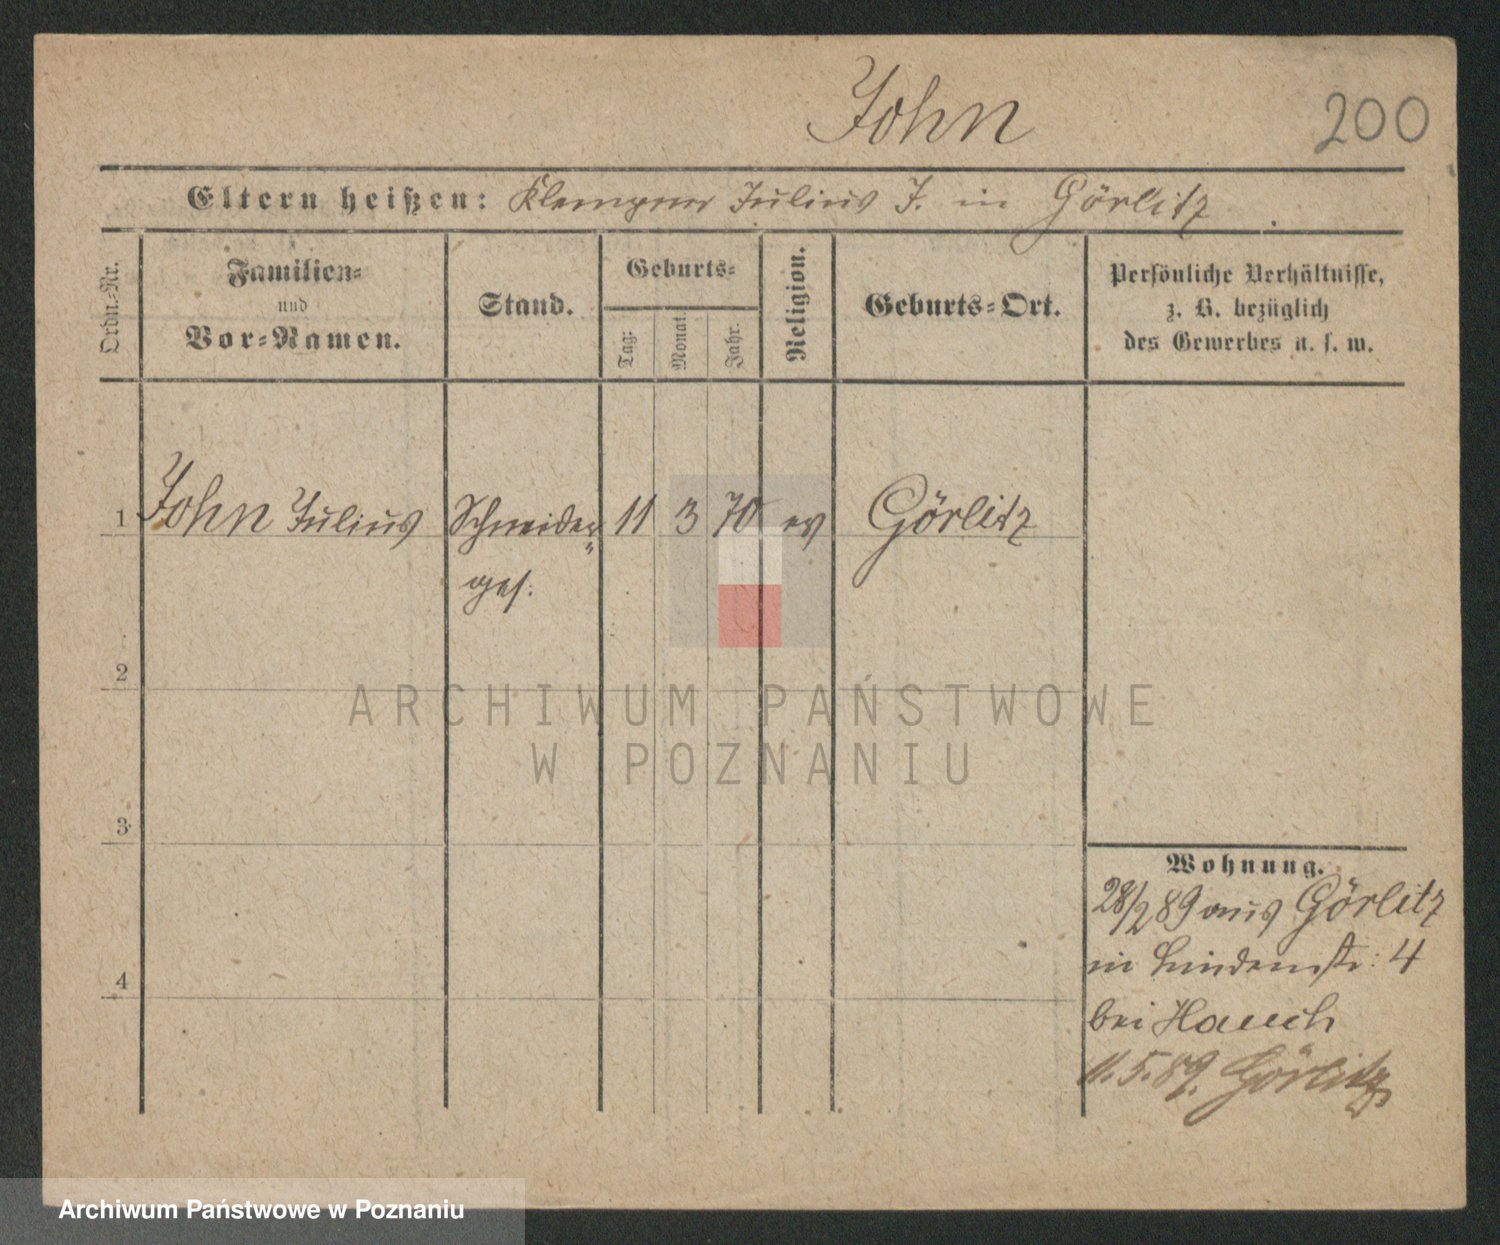 John
200
Eltern heißen: Klempner Julius J. in Görlitz
Ordn.-Nr.
Familien-
und
Vor-Namen.
Stand.
Geburts-
Tag:
Monat.
Jahr.
Religion.
Geburts-Ort.
Persönliche Verhältnisse,
z. B. bezüglich
des Gewerbes u. s. w.
1 John Julius Schneider 11 3 70 ev Görlitz
ges.
2
3
4
ARCHIWUM PAŃSTWOWE
W POZNANIU
Wohnung.
28/2 89 aus Görlitz
in Lindenstr: 4
bei Hauch
11.5.89. Görlitz
Archiwum Państwowe w Poznaniu